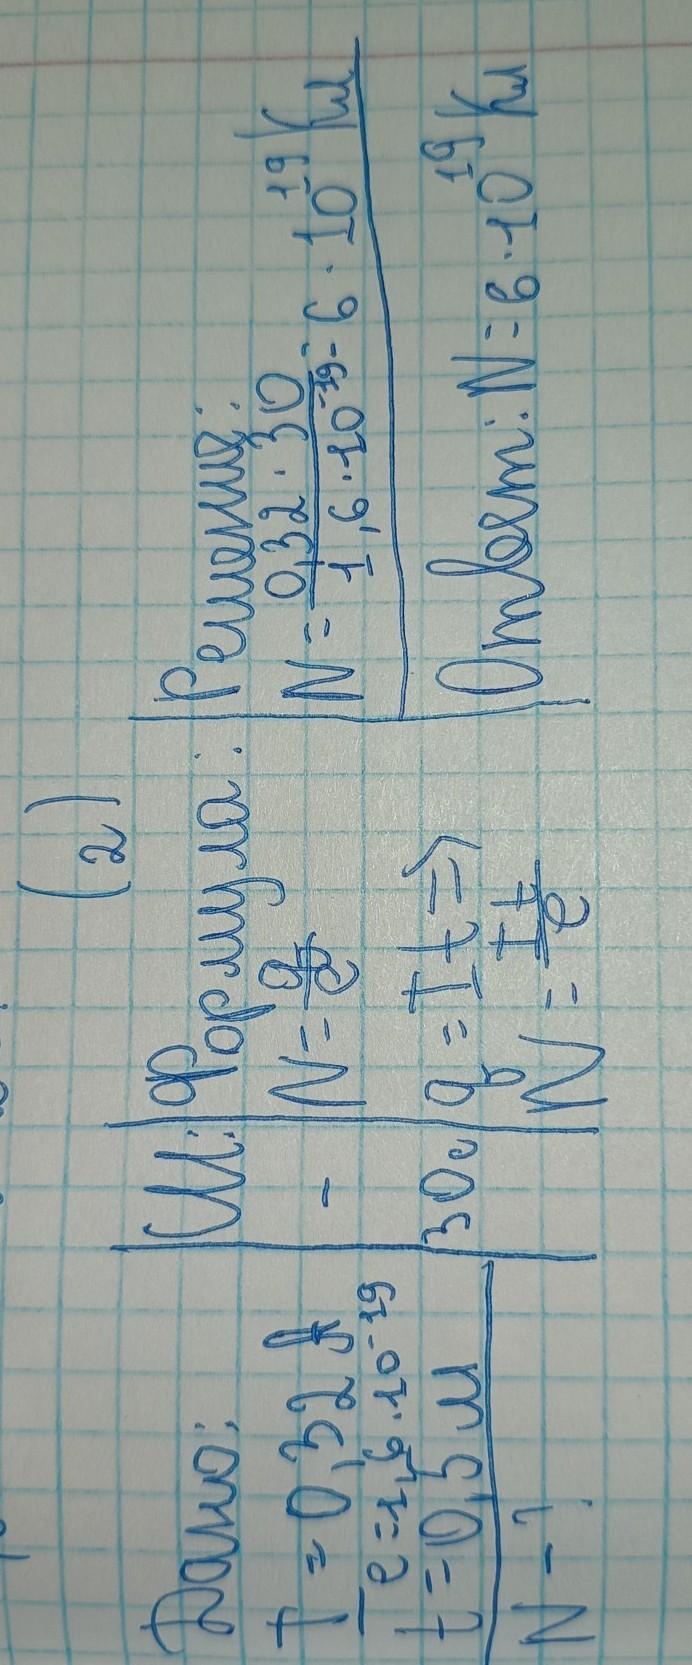 (2)
Дано:
I = 0,32 А
e = 1,6 · 10⁻¹⁹
t = 0,5 м
N - ?
СИ:
-
30с
Формула:
N = q/e
q = It =>
N = It/e
Решение:
N = 0,32 · 30 / 1,6 · 10⁻¹⁹ = 6 · 10¹⁹ Кл
Ответ: N = 6 · 10¹⁹ Кл